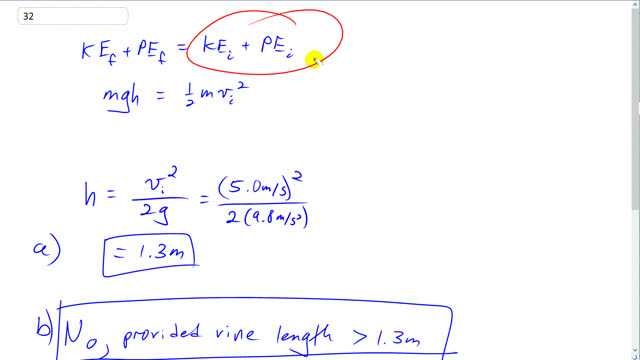 32
KE_f + PE_f = KE_i + PE_i
mgh = 1/2 m v_i^2
h = v_i^2 / 2g = (5.0 m/s)^2 / 2(9.8 m/s^2)
a) = 1.3 m
b) No, provided vine length > 1.3 m